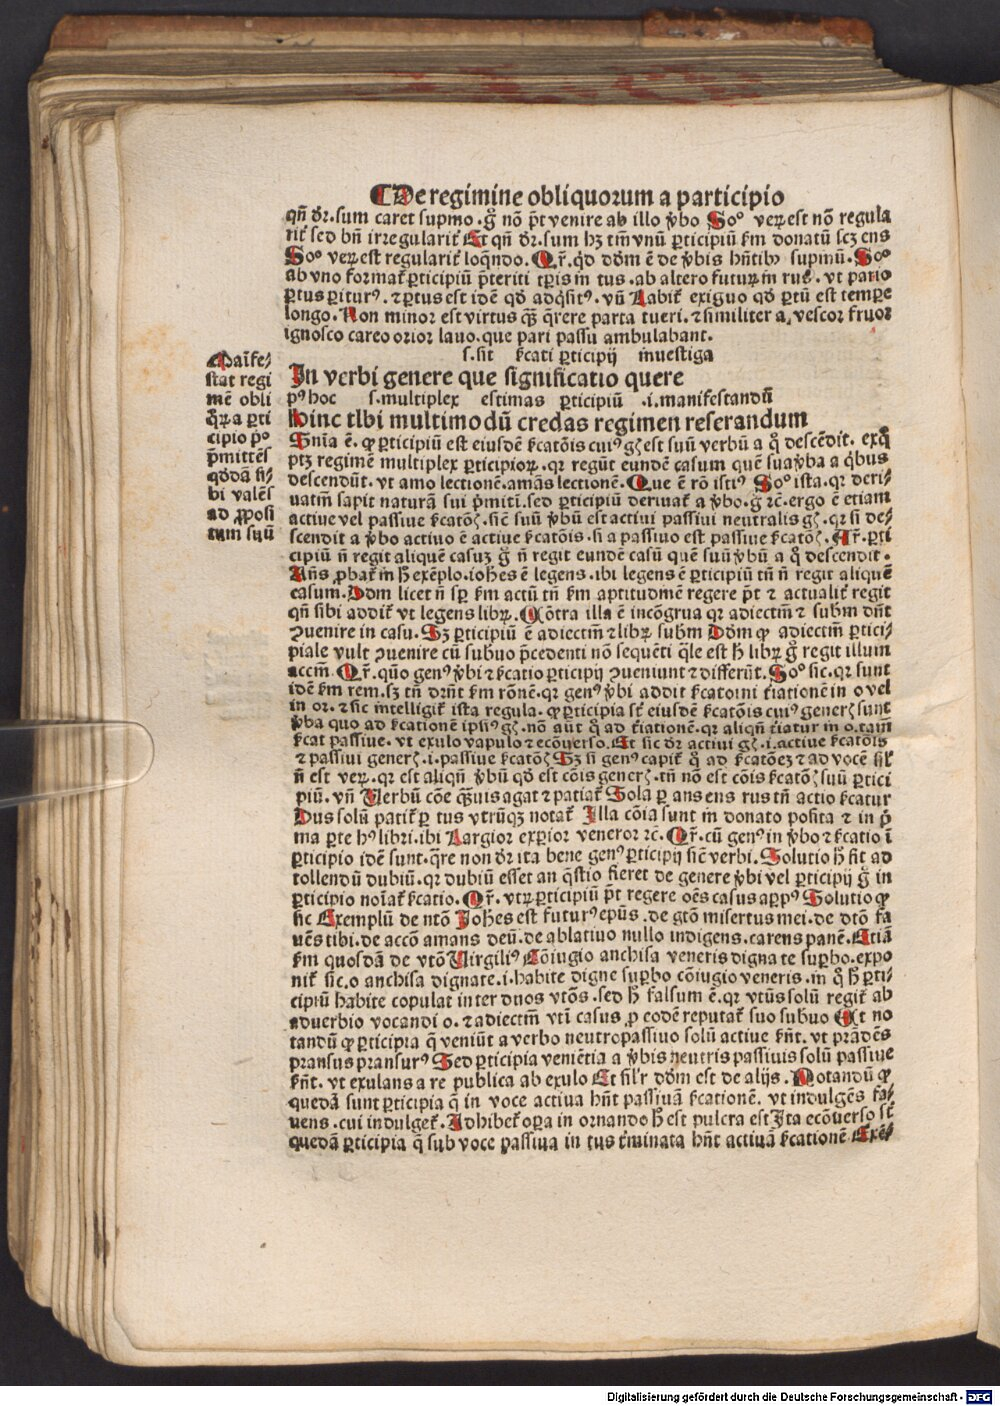 De regimine obliquorum a participio
qñ dr̄. sum caret supino. g̊ nō pt̄ venire ab illo v̓bo Soº veꝝ est nō regula
rit̓ sed bñ irregularit̓ Et qñ dr̄. sum hꝫ tm̄ vnū ꝑticipiū ẜm donatū scꝫ ens
Soº veꝝ est regularit̓ loqñdo. Qr̄. qd̓ dd̓m ē de v̓bis hñtibꝫ supinū. Soº
ab vno format̓ ꝑticipiū p̄teriti tꝑis in tus. ab altero futuꝝ in rus. vt pario
ꝑtus ꝑiturꝰ. ⁊ ꝑtus est idē qd̓ adq̄sitꝰ. vñ Labit̓ exiguo qd̓ ꝑtū est tempe
longo. Non minor est virtus q̄ꝫ q̄rere parta tueri. ⁊ similiter a vescor fruor
ignosco careo orior lauo. que pari passu ambulabant.
s. sit ẜcati ꝑticipij inuestiga
In verbi genere que significatio quere
pꝰ hoc s. multiplex estimas ꝑticipiū .i. manifestandū
Hinc tibi multimodū credas regimen referandum
Snīa ē. ꝙ ꝑticipiū est eiusdē ẜcatōis cuiꝰ gn̄is est suū verbū a q̊ descēdit. ex q̊
ptꝫ regimē multiplex ꝑticipioꝝ. qꝛ regūt eundē casum quē sua v̓ba a q̓bus
descendūt. vt amo lectionē. amās lectionē. Que ē rō istiꝰ Soº ista. qꝛ deri⸗
uatm̄ sapit naturā sui p̓mitī. sed ꝑticipiū deriuat̓ a v̓bo. g̊ ⁊c̄. ergo ē etiam
actiue vel passiue ẜcatōis. sic̄ suū v̓bū est actiui passiui neutralis gn̄is. qꝛ si de⸗
scendit a v̓bo actiuo ē actiue ẜcatōis. si a passiuo est passiue ẜcatōis. Ar̄. ꝑti
cipiū ñ regit aliquē casuꝫ g̊ ñ regit eundē casū quē suū v̓bū a q̊ descendit.
Añs ꝓbat̓ in h̄ exēplo. iohēs ē legens. ibi legens ē ꝑticipiū tñ ñ regit aliquē
casum. Dd̓m licet ñ sꝑ ẜm actū tñ ẜm aptitudinē regere pt̄ ⁊ actualit̓ regit
qñ sibi addit̓ vt legens libꝝ. Cōtra illa ē incōgrua qꝛ adiectm̄ ⁊ subm̄ dñt
ꝯuenire in casu. Sꝫ ꝑticipiū ē adiectm̄ ⁊ libꝝ subm̄ Dd̓m ꝙ adiectm̄ ꝑtici⸗
piale vult ꝯuenire cū subuo p̄cedenti nō sequēti q̄le est h̄ libꝝ g̊ regit illum
accm̄. Qr̄. quō genꝰ v̓bi ⁊ ẜcatio ꝑticipij ꝯueniunt ⁊ differūt. Soº sic. qꝛ sunt
idē ẜm rem. sꝫ tñ dr̄nt ẜm rōnē. qꝛ genꝰ v̓bi addit ẜcatoini t̓iationē in o vel
in or. ⁊ sic intelligit̓ ista regula. ꝙ ꝑticipia st̄ eiusdē ẜcatōis cuiꝰ gener̄is sunt
v̓ba quo ad ẜcationē ipsiꝰ gn̄is. nō aūt q̊ ad t̓iationē. qꝛ aliqñ t̓iatur in o. tam̄
ẜcat passiue. vt exulo vapulo ⁊ ecōuerso. Et sic dr̄ actiui gn̄is .i. actiue ẜcatōis
⁊ passiui gener̄is .i. passiue ẜcatōis Sꝫ si genꝰ capit̓ q̊ ad ẜcatōeꝫ ⁊ ad vocē sil̓
ñ est veꝝ. qꝛ est aliqñ v̓bū qd̓ est cōis gener̄is. tñ nō est cōis ẜcatōis suū ꝑtici
piū. vñ Verbū cōe q̄ꝫuis agat ⁊ patiat̓ Sola ꝑ ans ens rus tñ actio ẜcatur
Dus solū patit̓ ꝑ tus vtrūqꝫ notat̓ Illa cōia sunt in donato posita ⁊ in p̓
ma ꝑte hꝰ libri. ibi Largior exꝑior veneror ⁊c̄. Qr̄. cū genꝰ in v̓bo ⁊ ẜcatio ī
ꝑticipio idē sunt. q̄re non dr̄ ita bene genꝰ ꝑticipij sic̄ verbi. Solutio h̄ fit ad
tollendū dubiū. qꝛ dubiū esset an q̄stio fieret de genere v̓bi vel ꝑticipij g̊ in
ꝑticipio noīat̓ ẜcatio. Qr̄. vtꝝ ꝑticipiū pt̄ regere oēs casus a ꝑpꝰ Solutio ꝙ
sic Exemplū de ntō Johēs est futurꝰ epūs. de gtō misertus mei. de dtō fa
uēs tibi. de accō amans deū. de ablatiuo nullo indigens. carens panē. Etiā
ẜm quosdā de vtō Virgiliꝰ Cōiugio anchisa veneris dignate suꝑbo. expo
nit̓ sic. o anchisa dignate .i. habite digne suꝑbo cōiugio veneris. in q̊ h̄ ꝑti⸗
cipiū habite copulat inter duos vtōs. sed h̄ falsum ē. qꝛ vtūs solū regit̓ ab
aduerbio vocandi o. ⁊ adiectm̄ vti casus ꝓ eodē reputat̓ suo subuo Et no
tandū ꝙ ꝑticipia q̄ veniūt a verbo neutropassiuo solū actiue ẜn̄t. vt prādēs
pransus pransurꝰ Sed ꝑticipia veniētia a v̓bis neutris passiuis solū passiue
ẜn̄t. vt exulans a re publica ab exulo Et sil̓r dd̓m est de alijs. Notandū ꝙ
quedā sunt ꝑticipia q̄ in voce actiua hñt passiuā ẜcationē. vt indulgēs fa⸗
uens. cui indulget̓. Adhibet̓ oꝑa in ornando h̄ est pulcra est Ita ecōuerso st̄
quedā ꝑticipia q̄ sub voce passiua in tus t̓minata hñt actiuā ẜcationē Exē⸗
Maīfe⸗
stat regi
mē obli
q̊ꝝ a ꝑti
cipio pº
p̄mittēs
qd̓dā si⸗
bi valēs
ad ꝓposi
tum suū
Digitalisierung gefördert durch die Deutsche Forschungsgemeinschaft - DFG